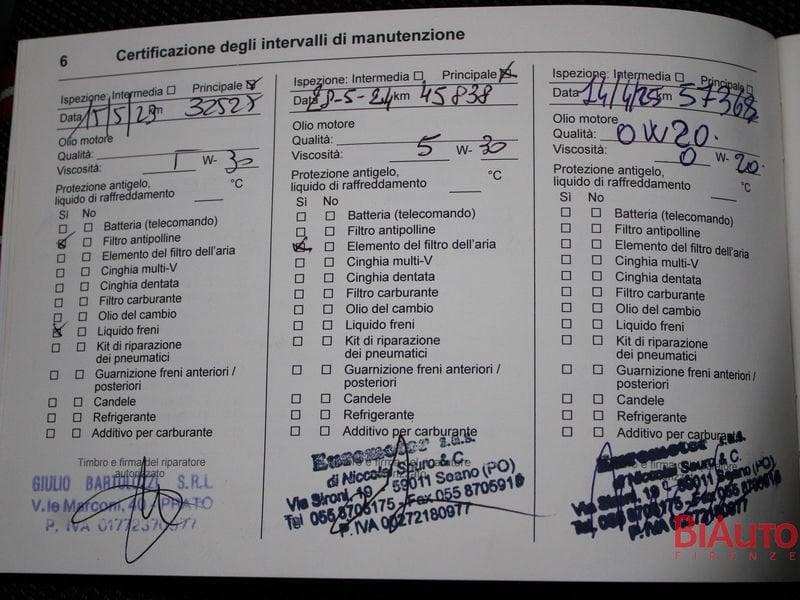 6 Certificazione degli intervalli di manutenzione
Ispezione: Intermedia Principale
Data 15/5/23 km 32527
Olio motore
Qualità:
Viscosità: W- 30
Protezione antigelo,
liquido di raffreddamento °C
Sì No
Batteria (telecomando)
Filtro antipolline
Elemento del filtro dell'aria
Cinghia multi-V
Cinghia dentata
Filtro carburante
Olio del cambio
Liquido freni
Kit di riparazione
dei pneumatici
Guarnizione freni anteriori /
posteriori
Candele
Refrigerante
Additivo per carburante
Timbro e firma del riparatore
autorizzato
GIULIO BARTOLOZZI S.R.L
V.le Marconi, 40 / PRATO
P. IVA
Ispezione: Intermedia Principale
Data 28-5-24 km 45838
Olio motore
Qualità:
Viscosità: 5 W- 30
Protezione antigelo,
liquido di raffreddamento °C
Sì No
Batteria (telecomando)
Filtro antipolline
Elemento del filtro dell'aria
Cinghia multi-V
Cinghia dentata
Filtro carburante
Olio del cambio
Liquido freni
Kit di riparazione
dei pneumatici
Guarnizione freni anteriori /
posteriori
Candele
Refrigerante
Additivo per carburante
Euromotor s.a.s.
di Niccolai Sauro & C.
Via Sironi, 19 - 59011 Seano (PO)
Tel 055 8706175 - Fax 055 8705918
P. IVA 00272180977
Ispezione: Intermedia Principale
Data 14/4/25 km 57368
Olio motore
Qualità: 0W20.
Viscosità: 0 W- 20.
Protezione antigelo,
liquido di raffreddamento °C
Sì No
Batteria (telecomando)
Filtro antipolline
Elemento del filtro dell'aria
Cinghia multi-V
Cinghia dentata
Filtro carburante
Olio del cambio
Liquido freni
Kit di riparazione
dei pneumatici
Guarnizione freni anteriori /
posteriori
Candele
Refrigerante
Additivo per carburante
Euromotor s.a.s.
di Niccolai Sauro & C.
Via Sironi, 19 - 59011 Seano (PO)
Tel. 055 8706175 - Fax 055 8705918
P.IVA 00272180977
BIAUTO
FIRENZE